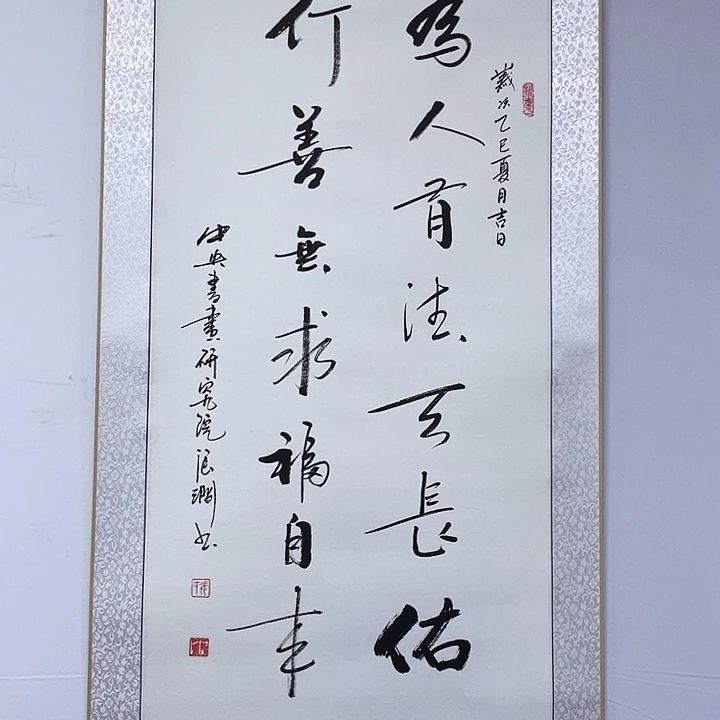 歲次乙巳夏月吉日
為人有德天長佑
行善無求福自來
中央書畫研究院張书